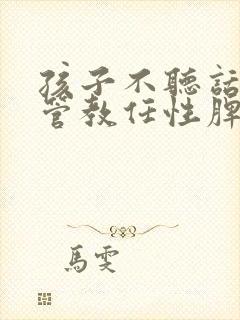 孩子不聽話
管教任性脾
馬雯